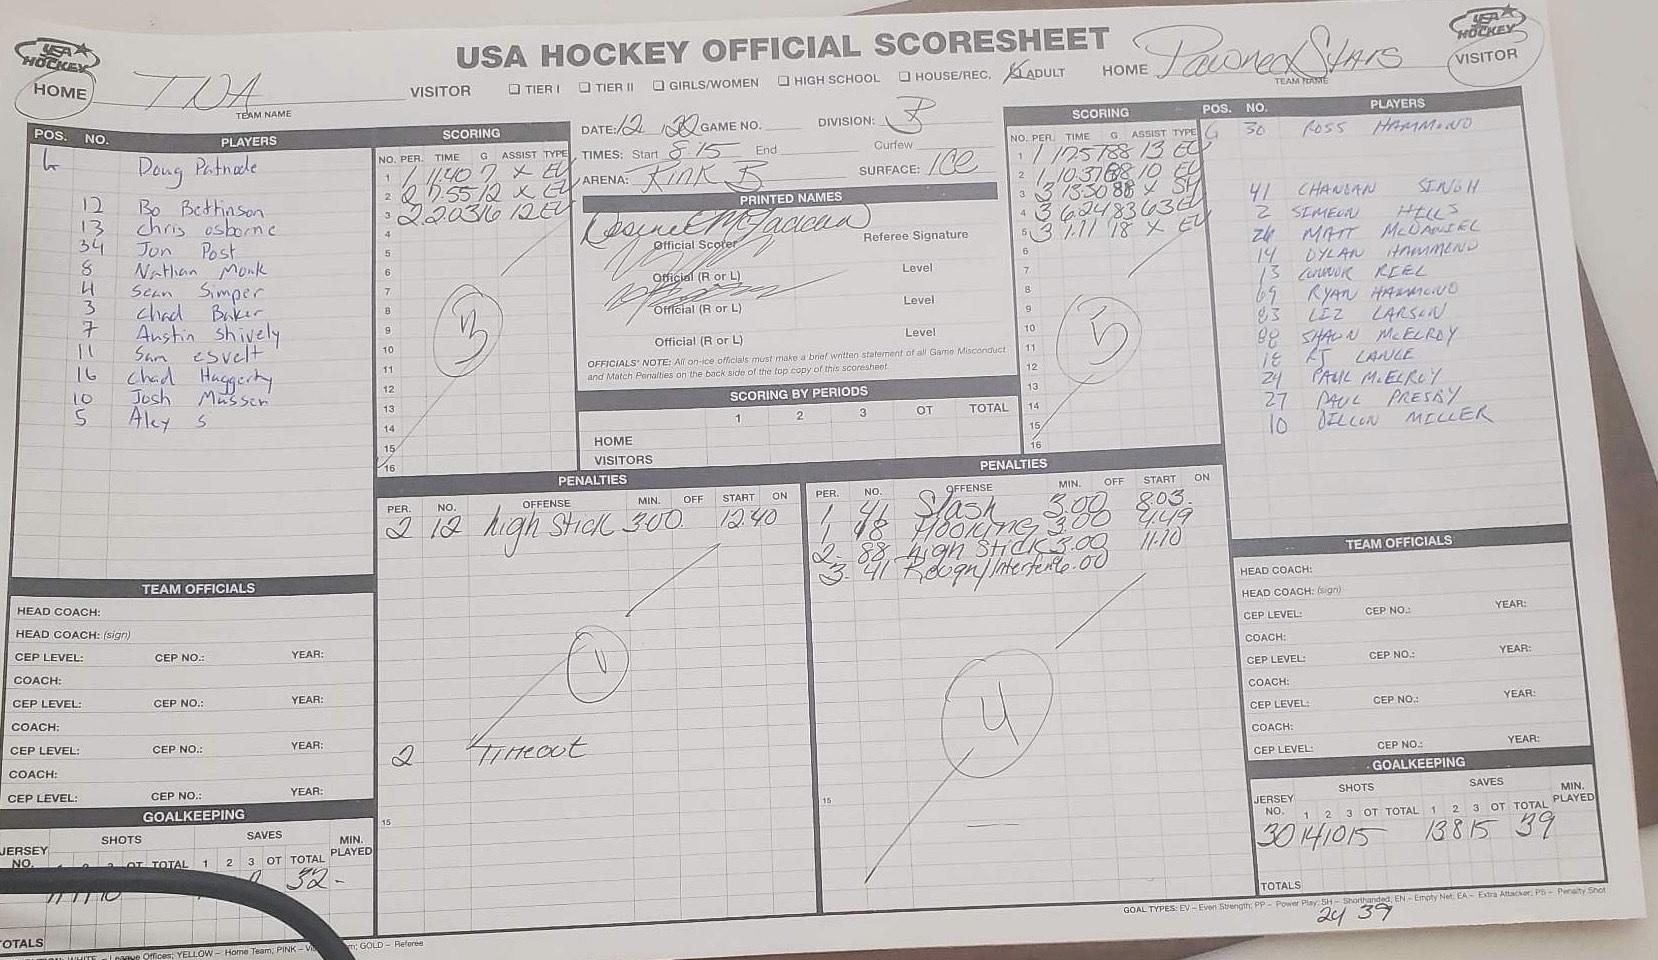 USA HOCKEY OFFICIAL SCORESHEET
USA HOCKEY
HOME
TNA
TEAM NAME
VISITOR
TIER I TIER II GIRLS/WOMEN HIGH SCHOOL HOUSE/REC. ADULT
HOME
Pawned Stars
TEAM NAME
USA HOCKEY
VISITOR
POS. NO. PLAYERS
G Doug Patnode
12 Bo Bettinson
13 Chris osborne
34 Jon Post
8 Nathan Monk
4 Sean Simper
3 Chad Baker
7 Austin Shively
11 Sam esvelt
16 Chad Haggerty
10 Josh Musser
5 Alex S
SCORING
NO. PER. TIME G ASSIST TYPE
1 1 11.40 7 X EV
2 2 7.55 12 X EV
3 2 2.03 16 12 EV
4
5
6
7
8
9
10
11
12
13
14
15
16
3
DATE: 12 20 GAME NO. DIVISION: B
TIMES: Start 8:15 End Curfew
ARENA: Rink B SURFACE: ICE
PRINTED NAMES
Official Scorer Referee Signature
Official (R or L) Level
Official (R or L) Level
Official (R or L) Level
OFFICIALS' NOTE: All on-ice officials must make a brief written statement of all Game Misconduct
and Match Penalties on the back side of the top copy of this scoresheet
SCORING BY PERIODS
1 2 3 OT TOTAL
HOME
VISITORS
SCORING
NO. PER. TIME G ASSIST TYPE
1 1 12.57 88 13 EV
2 1 10.37 88 10 EV
3 3 13.30 88 X SH
4 3 6.24 83 63 EV
5 3 1.11 18 X EV
6
7
8
9
10
11
12
13
14
15
16
5
POS. NO. PLAYERS
G 30 ROSS HAMMOND
41 CHANDAN SINGH
2 SIMEON HILLS
26 MATT McDANIEL
14 DYLAN HAMMOND
13 CONNOR RIEL
69 RYAN HAMMOND
83 LIZ LARSON
88 SHAUN McELROY
18 RJ LANGE
24 PAUL McELROY
27 PAUL PRESBY
10 DILLON MILLER
PENALTIES
PER. NO. OFFENSE MIN. OFF START ON
2 12 high Stick 3.00 12.40
1
2 TIMEOUT
15
PENALTIES
PER. NO. OFFENSE MIN. OFF START ON
1 41 Slash 3.00 8.03
1 18 Hooking 3.00 4.49
2 88 high Stick 3.00 11.10
3 41 Rough/Interference 6.00
4
15
TEAM OFFICIALS
HEAD COACH:
HEAD COACH: (sign)
CEP LEVEL: CEP NO.: YEAR:
COACH:
CEP LEVEL: CEP NO.: YEAR:
COACH:
CEP LEVEL: CEP NO.: YEAR:
COACH:
CEP LEVEL: CEP NO.: YEAR:
GOALKEEPING
SHOTS SAVES
JERSEY NO. OT TOTAL 1 2 3 OT TOTAL MIN. PLAYED
32
TOTALS
TEAM OFFICIALS
HEAD COACH:
HEAD COACH: (sign)
CEP LEVEL: CEP NO.: YEAR:
COACH:
CEP LEVEL: CEP NO.: YEAR:
COACH:
CEP LEVEL: CEP NO.: YEAR:
COACH:
CEP LEVEL: CEP NO.: YEAR:
GOALKEEPING
SHOTS SAVES
JERSEY NO. 1 2 3 OT TOTAL 1 2 3 OT TOTAL MIN. PLAYED
30 14 10 15 13 8 15 39
TOTALS
GOAL TYPES: EV – Even Strength; PP – Power Play; SH – Shorthanded; EN – Empty Net; EA – Extra Attacker; PS – Penalty Shot
24 39
League Offices; YELLOW – Home Team; PINK – GOLD – Referee